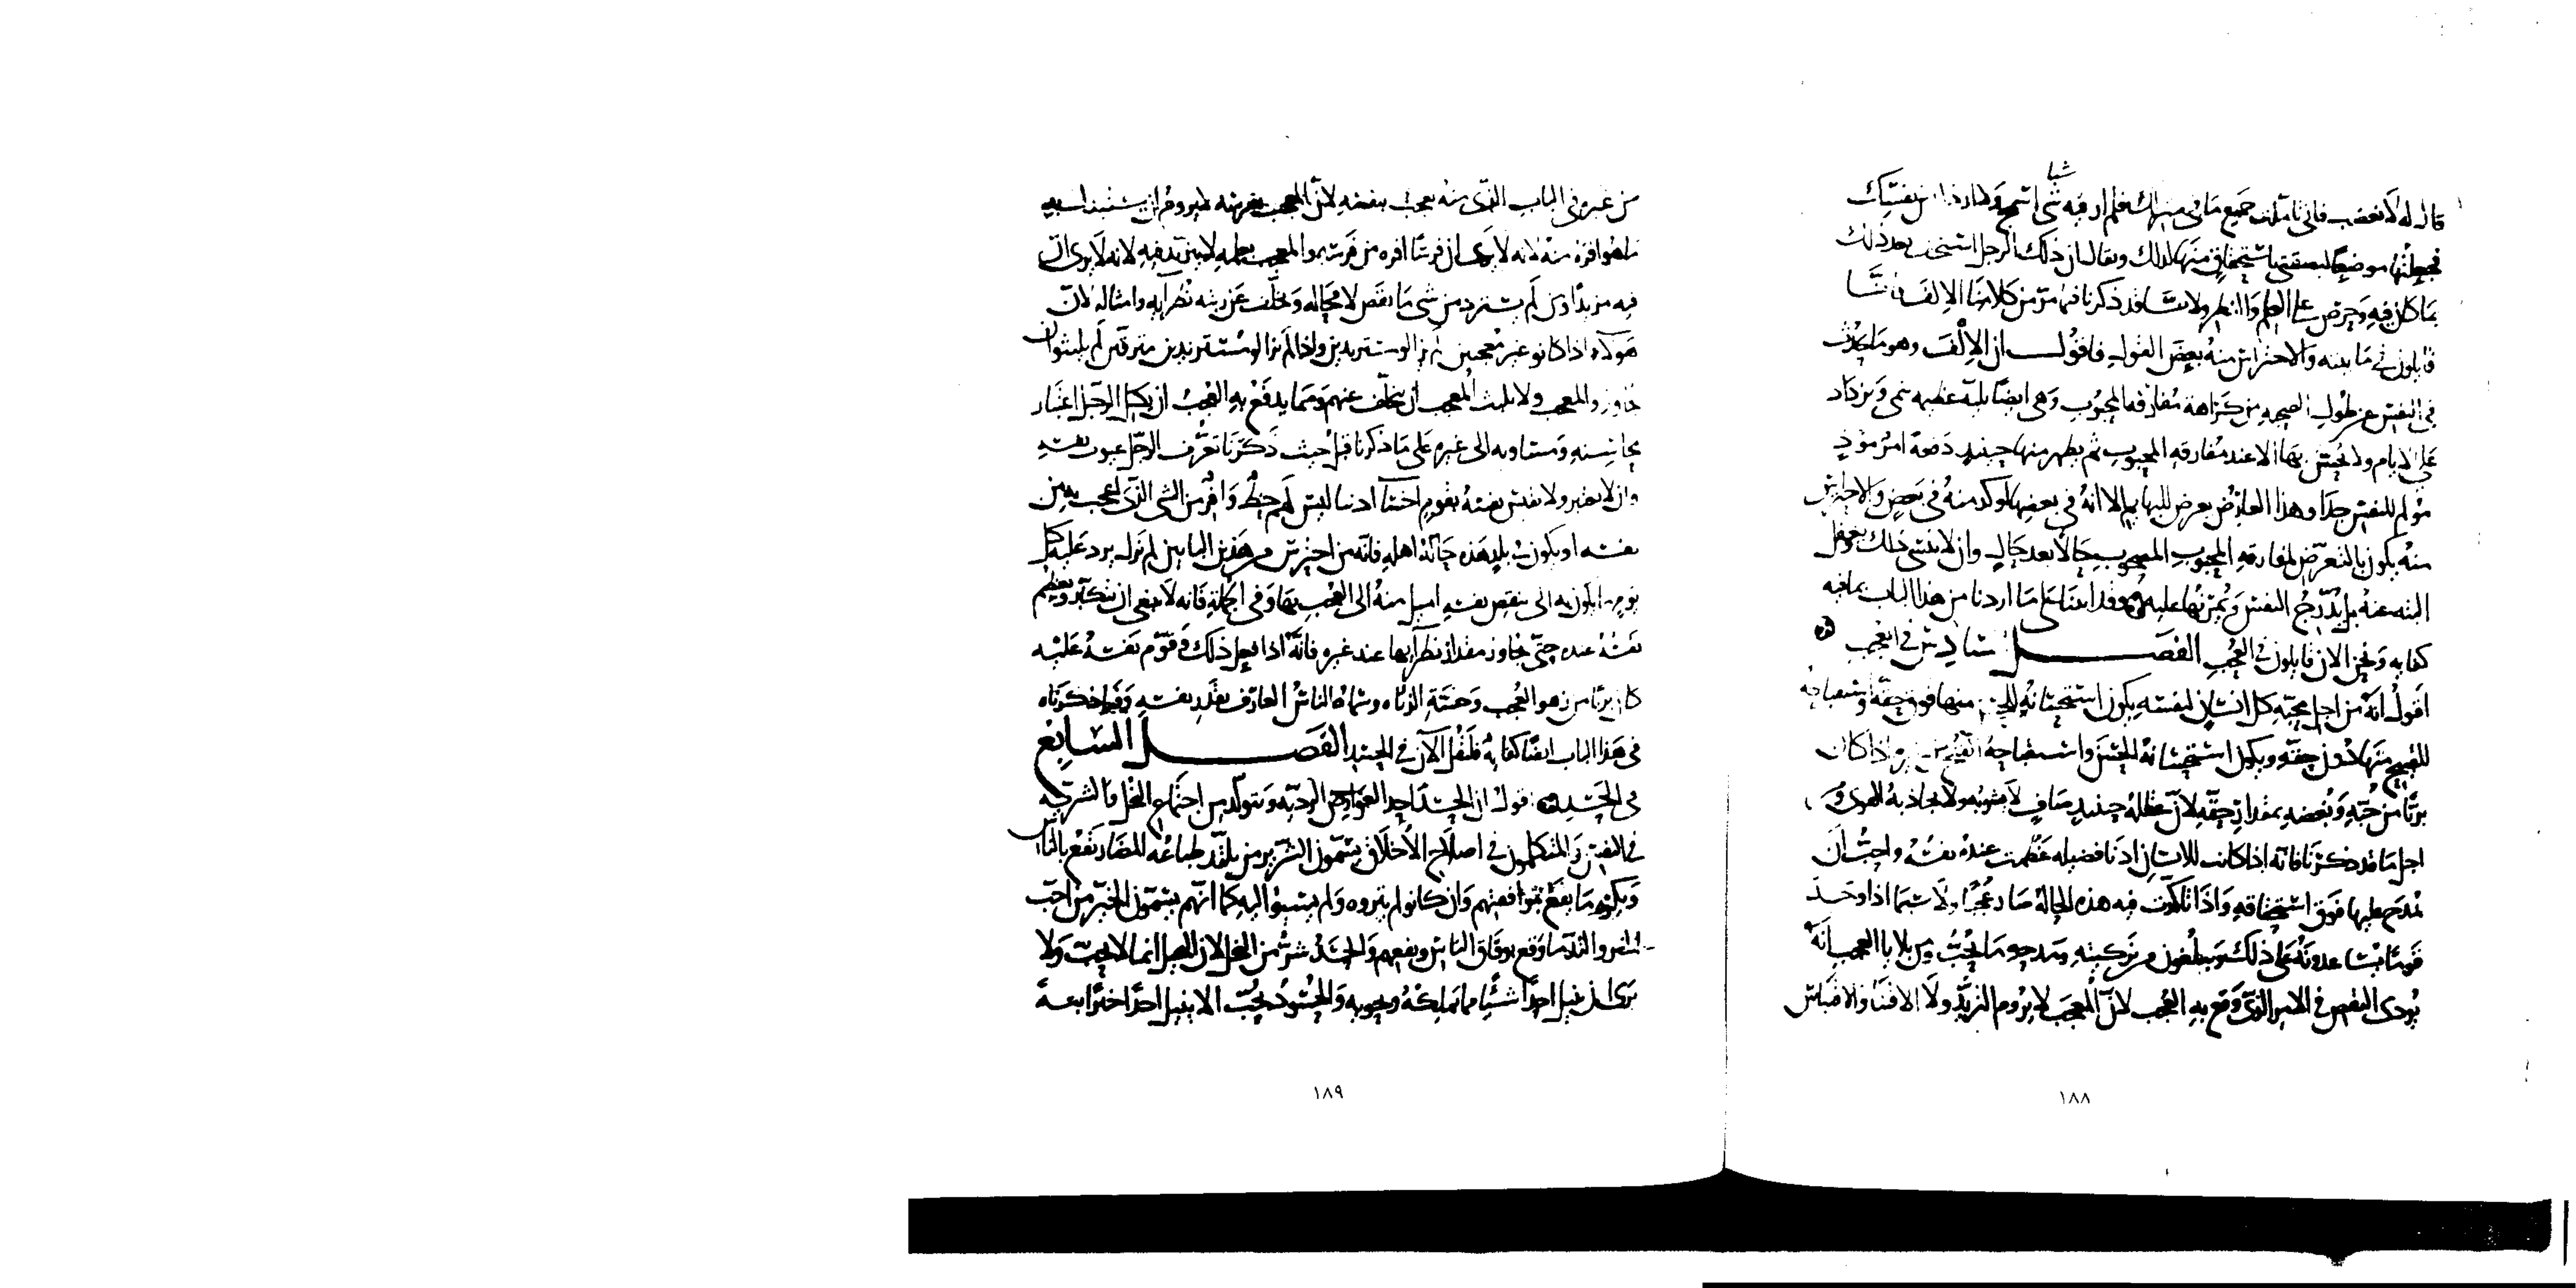 شيا
قال له لا تغضب فاني تاملت جميع ما في منزلك فلم ار فيه شي اسمج ولا ارذل من نفسك
فجعلتها موضعا لبصقتي باستحقاق منها لذلك ويقال ان ذلك الرجل استخف بعد ذلك
بما كان فيه وحرص على العلم والنظر ولانا قد ذكرنا فيما مر من كلامنا الالف فانا
قايلون في مابيته والاحتراس منه بعض القول فاقول ان الالف وهو ما يحدث
في النفس عن طول الصحبه من كراهة مفارقه المحبوب وهي ايضا بلية عظيمه تنمي وتزداد
على الايام ولا يحس بها الا عند مفارقه المحبوب ثم يظهر منها حينيذ دفعة امر موذ
مولم للنفس جدا وهذا العارض يعرض للبهايم الا انه في بعضها اوكد منه في بعض والاحتراس
منه يكون بالتعرض لمفارقه المحبوب المصحوب حالا بعد حال وان لا ينسى ذلك ويغفل
البته عنه بل يدرج النفس ويمرنها عليه وقد اتينا على ما اردنا من هذا الباب بما فيه
كفايه ونحن الان قايلون في العجب الفصل سادس في العجب
اقول انه من اجل محبة كل انسان لنفسه يكون استحسانه للحسن منها فوق حقه واستقباحه
للقبيح منها دون حقه ويكون استحسانه للحسن واستقباحه القبيح من غيره اذا كان
بريا من حبه وبغضه بمقدار حقه لان عقله حينيذ صاف لا يشوبه ولا يجاذبه الهوى و
اجل ما قد ذكرنا فانه اذا كانت للانسان ادنا فضيله عظمت عنده نفسه واحب ان
يمدح عليها فوق استحقاقه واذا تاكدت فيه هذه الحاله صار عجبا ولا سيما اذا وجد
قوما يساعدونه على ذلك ويبلغون من تزكيته ومدحه ما يحب ومن بلايا العجب انه
يودي النقص في الامر الذي وقع به العجب لان المعجب لا يروم التزيد ولا الاقتنا والاقتباس
١٨٨
من غيره في الباب الذي منه يعجب بنفسه لان المعجب بفرسه لا يروم ان يستبدل به
ما هو افره منه لانه لا يرى ان فرسا افره من فرسه والمعجب بعلمه لا يتزيد فيه لانه لا يرى ان
فيه مزيدا ومن لم يستزد من شي ما نقص لا محاله وتخلف عن رتبه نظرايه وامثاله لان
هولاء اذا كانو غير معجبين لم يزالو مستزيدين واذا لم يزالو مستزيدين مترقين لم يلبثوا ان
يجاوزو المعجب ولا يلبث المعجب ان يتخلف عنهم ومما يدفع به العجب ان يكل الرجل اعتبار
محاسنه ومساويه الى غيره على ما ذكرنا قبل حيث ذكرنا تعرف الرجل عيوب نفسه
وان لا يعتبر ولا يقيس نفسه بقوم اخسا ادنيا ليس لهم حظ وافر من الشي الذي اعجب به من
نفسه او يكون في بلد هذه حالة اهله فانه من احترس من هذين البابين لم يزل يرد عليه كل
يوم ما يكون به الى تنقص نفسه اميل منه الى العجب بها وفي الجملة فانه لا ينبغي ان يتكبر ويعظم
نفسه عنده حتى يجاوز مقدار نظرايها عند غيره فانه اذا فعل ذلك وقوم نفسه عليه
كان بريا من زهو العجب وخسة الدناه وسماه الناس العارف بقدر نفسه وفيما ذكرناه
في هذا الباب ايضا كفايه فلنقل الان في الحسد الفصل السابع
في الحسد اقول ان الحسد احد العوارض الرديه ويتولد من اجتماع البخل والشره
في النفس والمتكلمون في اصلاح الاخلاق يسمون الشرير من يلتذ طباعه للمضار تقع بالناس
ويكره ما يقع بموافقتهم وان كانو لم يتروه ولم يسئوا اليه كما انهم يسمون الخير من احب
والتذ ما وقع بوفاق الناس ونفعهم والحسد شر من البخل لان البخيل انما لا يحب ولا
يرى ان ينيل احدا شيا مما يملكه ويحويه والحسود يحب الا ينيل احدا خيرا البتة
١٨٩